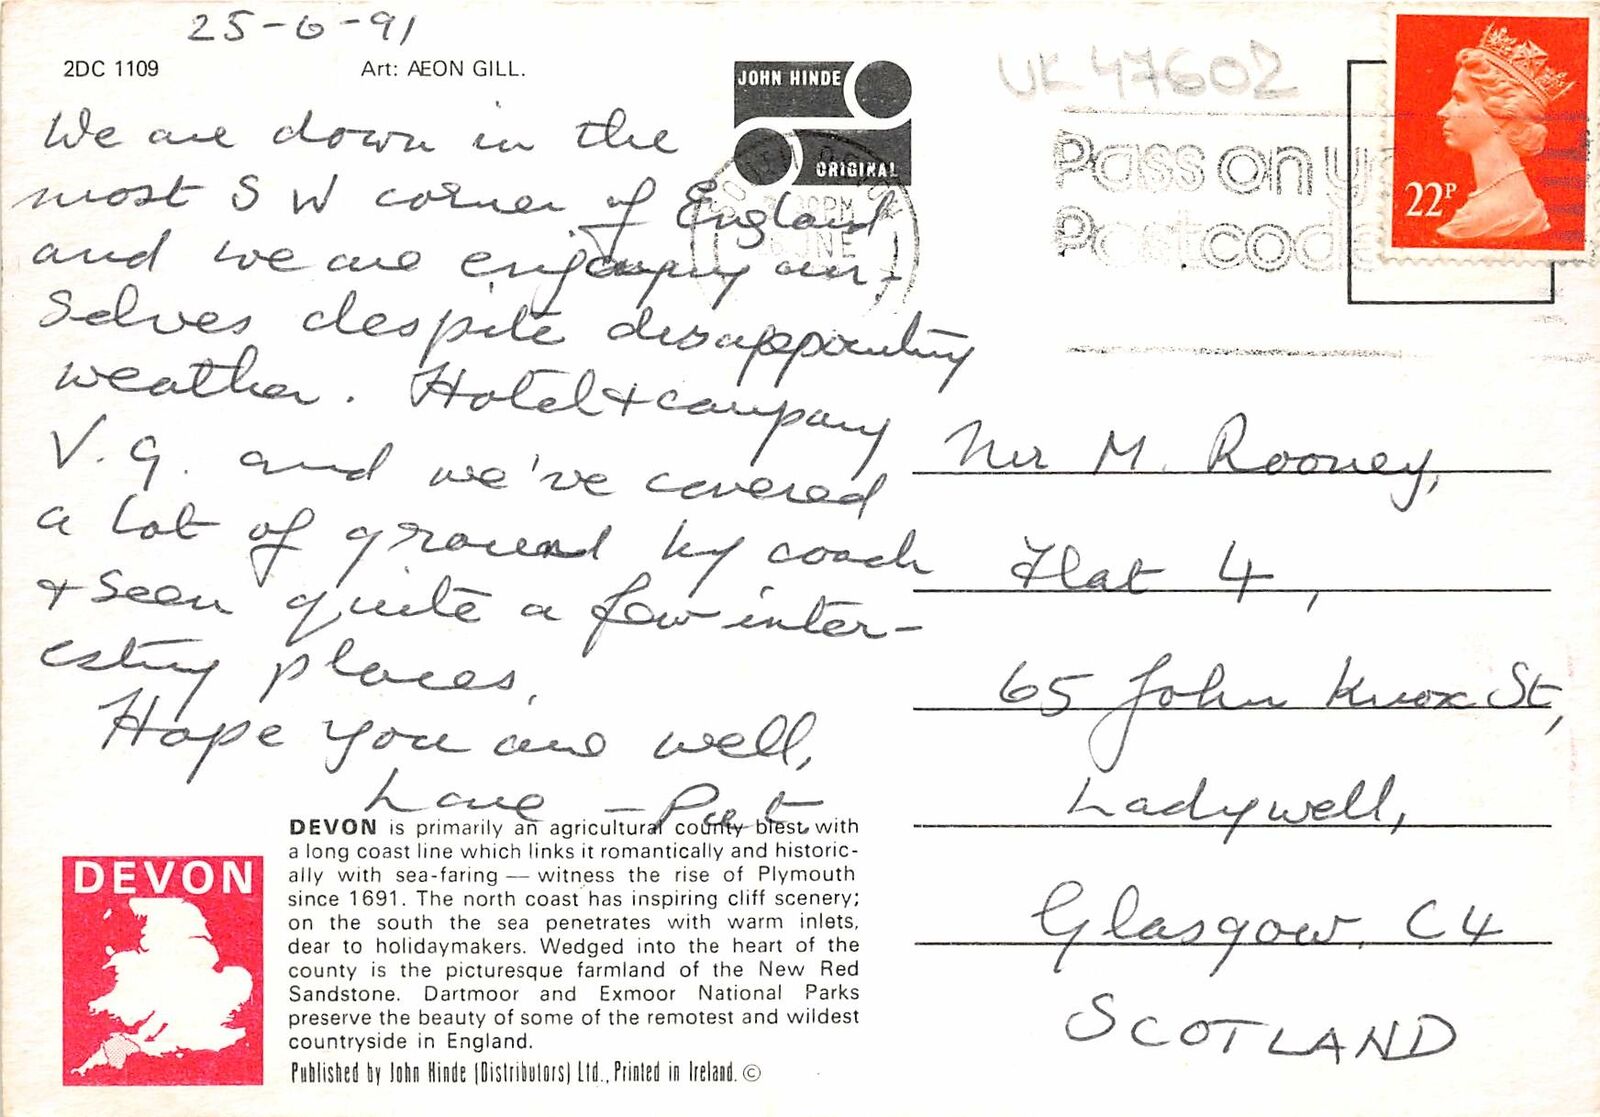 25-6-91
2DC 1109
Art: ÆON GILL.
JOHN HINDE
ORIGINAL
UK 47602
Pass on
Postcode
22P
We are down in the
most S W corner of England
and we are enjoying our-
selves despite disappointing
weather. Hotel + company
V. G. and we've covered
a lot of ground by coach
+ seen quite a few inter-
esting places.
Hope you are well,
Love – Pat
Mr M. Rooney,
Flat 4,
65 John Knox St,
Ladywell,
Glasgow. C4
SCOTLAND
DEVON
DEVON is primarily an agricultural county blest with
a long coast line which links it romantically and historic-
ally with sea-faring — witness the rise of Plymouth
since 1691. The north coast has inspiring cliff scenery;
on the south the sea penetrates with warm inlets,
dear to holidaymakers. Wedged into the heart of the
county is the picturesque farmland of the New Red
Sandstone. Dartmoor and Exmoor National Parks
preserve the beauty of some of the remotest and wildest
countryside in England.
Published by John Hinde (Distributors) Ltd., Printed in Ireland. ©